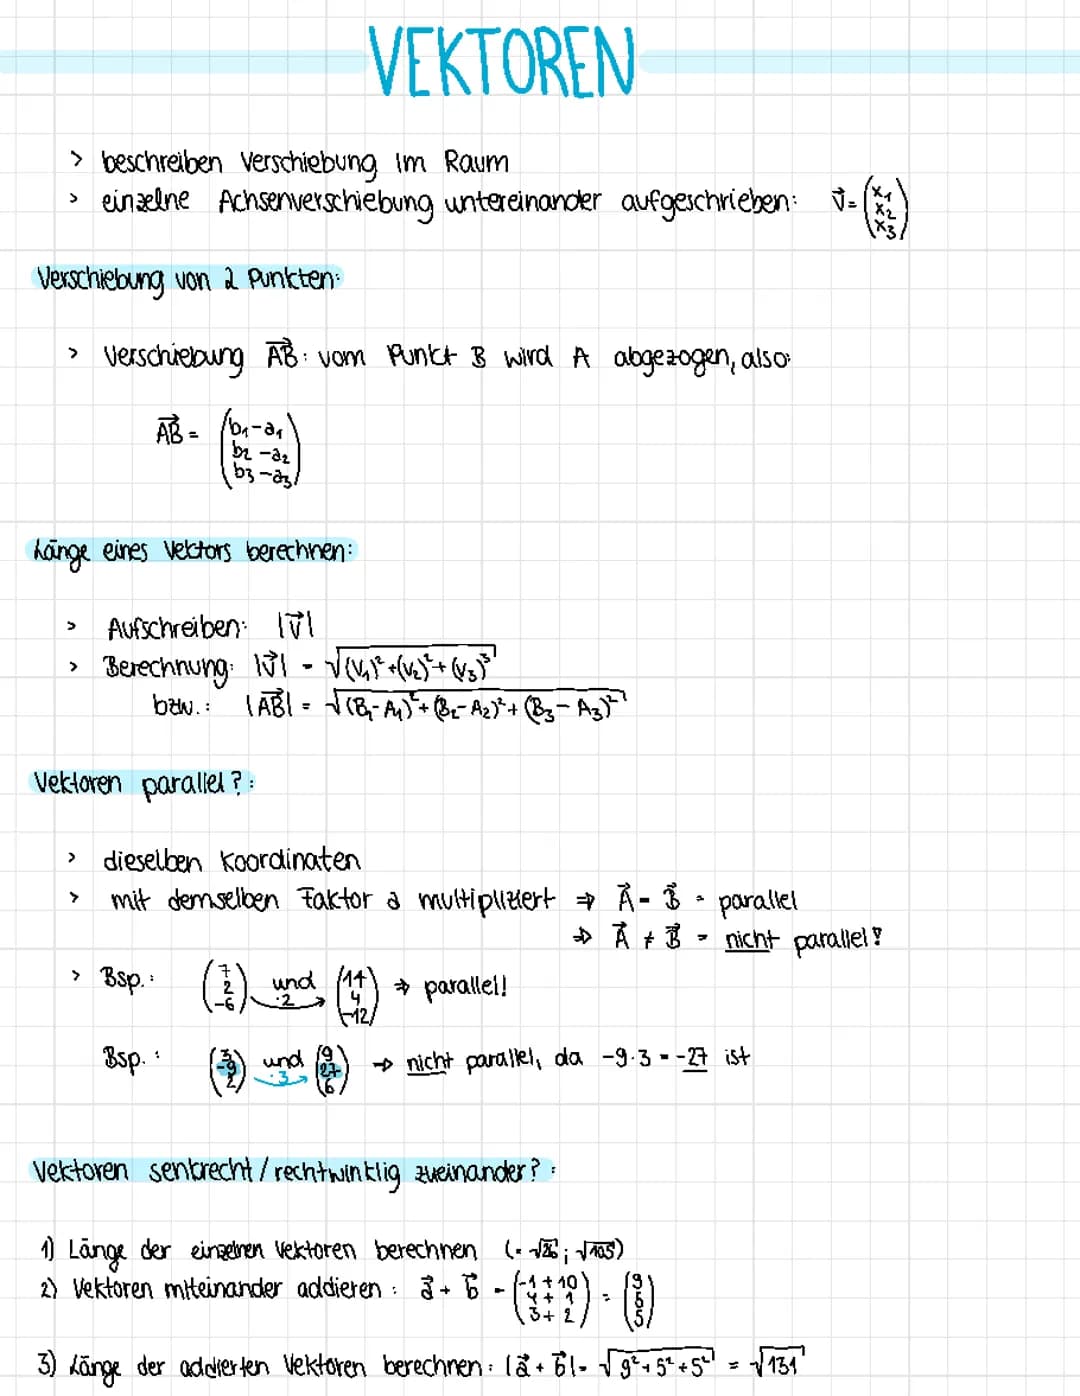 VEKTOREN
> beschreiben Verschiebung im Raum
> einzelne Achsenverschiebung untereinander aufgeschrieben: v⃗ = (x₁ x₂ x₃)
Verschiebung von 2 Punkten:
> Verschiebung A⃗B⃗: vom Punkt B wird A abgezogen, also:
A⃗B⃗ = (b₁-a₁
b₂-a₂
b₃-a₃)
Länge eines Vektors berechnen:
> Aufschreiben: |v⃗|
> Berechnung: |v⃗| = √((v₁)²+(v₂)²+(v₃)³)
bzw.: |A⃗B⃗| = √((B₁-A₁)²+(B₂-A₂)²+(B₃-A₃)²)
Vektoren parallel?:
> dieselben Koordinaten
> mit demselben Faktor a multipliziert ⇒ A⃗ = B⃗ = parallel
⇒ A⃗ ≠ B⃗ = nicht parallel!
> Bsp.: (7 2 -6) und (14 4 -12) ⇒ parallel!
·2
Bsp.: (3 -9 2) und (9 27 6) ⇒ nicht parallel, da -9·3 = -27 ist
·3
Vektoren senkrecht / rechtwinklig zueinander?:
1) Länge der einzelnen Vektoren berechnen (= √26; √105)
2) Vektoren miteinander addieren: a⃗ + b⃗ = (-1+10 4+1 3+2) = (9 5 5)
3) Länge der addierten Vektoren berechnen: |a⃗ + b⃗| = √(9²+5²+5²) = √131